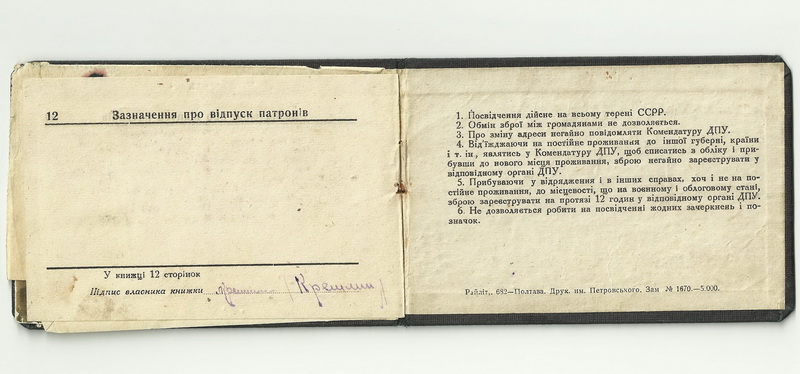 12 Зазначення про відпуск патронів
У книжці 12 сторінок
Підпис власника книжки /Крешлин/
1. Посвідчення дійсне на всьому терені ССРР.
2. Обмін зброї між громадянами не дозволяється.
3. Про зміну адреси негайно повідомляти Комендатуру ДПУ.
4. Від'їжджаючи на постійне проживання до іншої губерні, країни
і т. ін., являтись у Комендатуру ДПУ, щоб списатись з обліку і при-
бувши до нового місця проживання, зброю негайно зареєструвати у
відповідному органі ДПУ.
5. Прибуваючи у відрядження і в інших справах, хоч і не на по-
стійне проживання, до місцевості, що на воєнному і облоговому стані,
зброю зареєструвати на протязі 12 годин у відповідному органі ДПУ.
6. Не дозволяється робити на посвідченні жодних зачеркнень і по-
значок.
Райліт,. 682—Полтава. Друк. им. Петровського. Зам № 1670.—5.000.